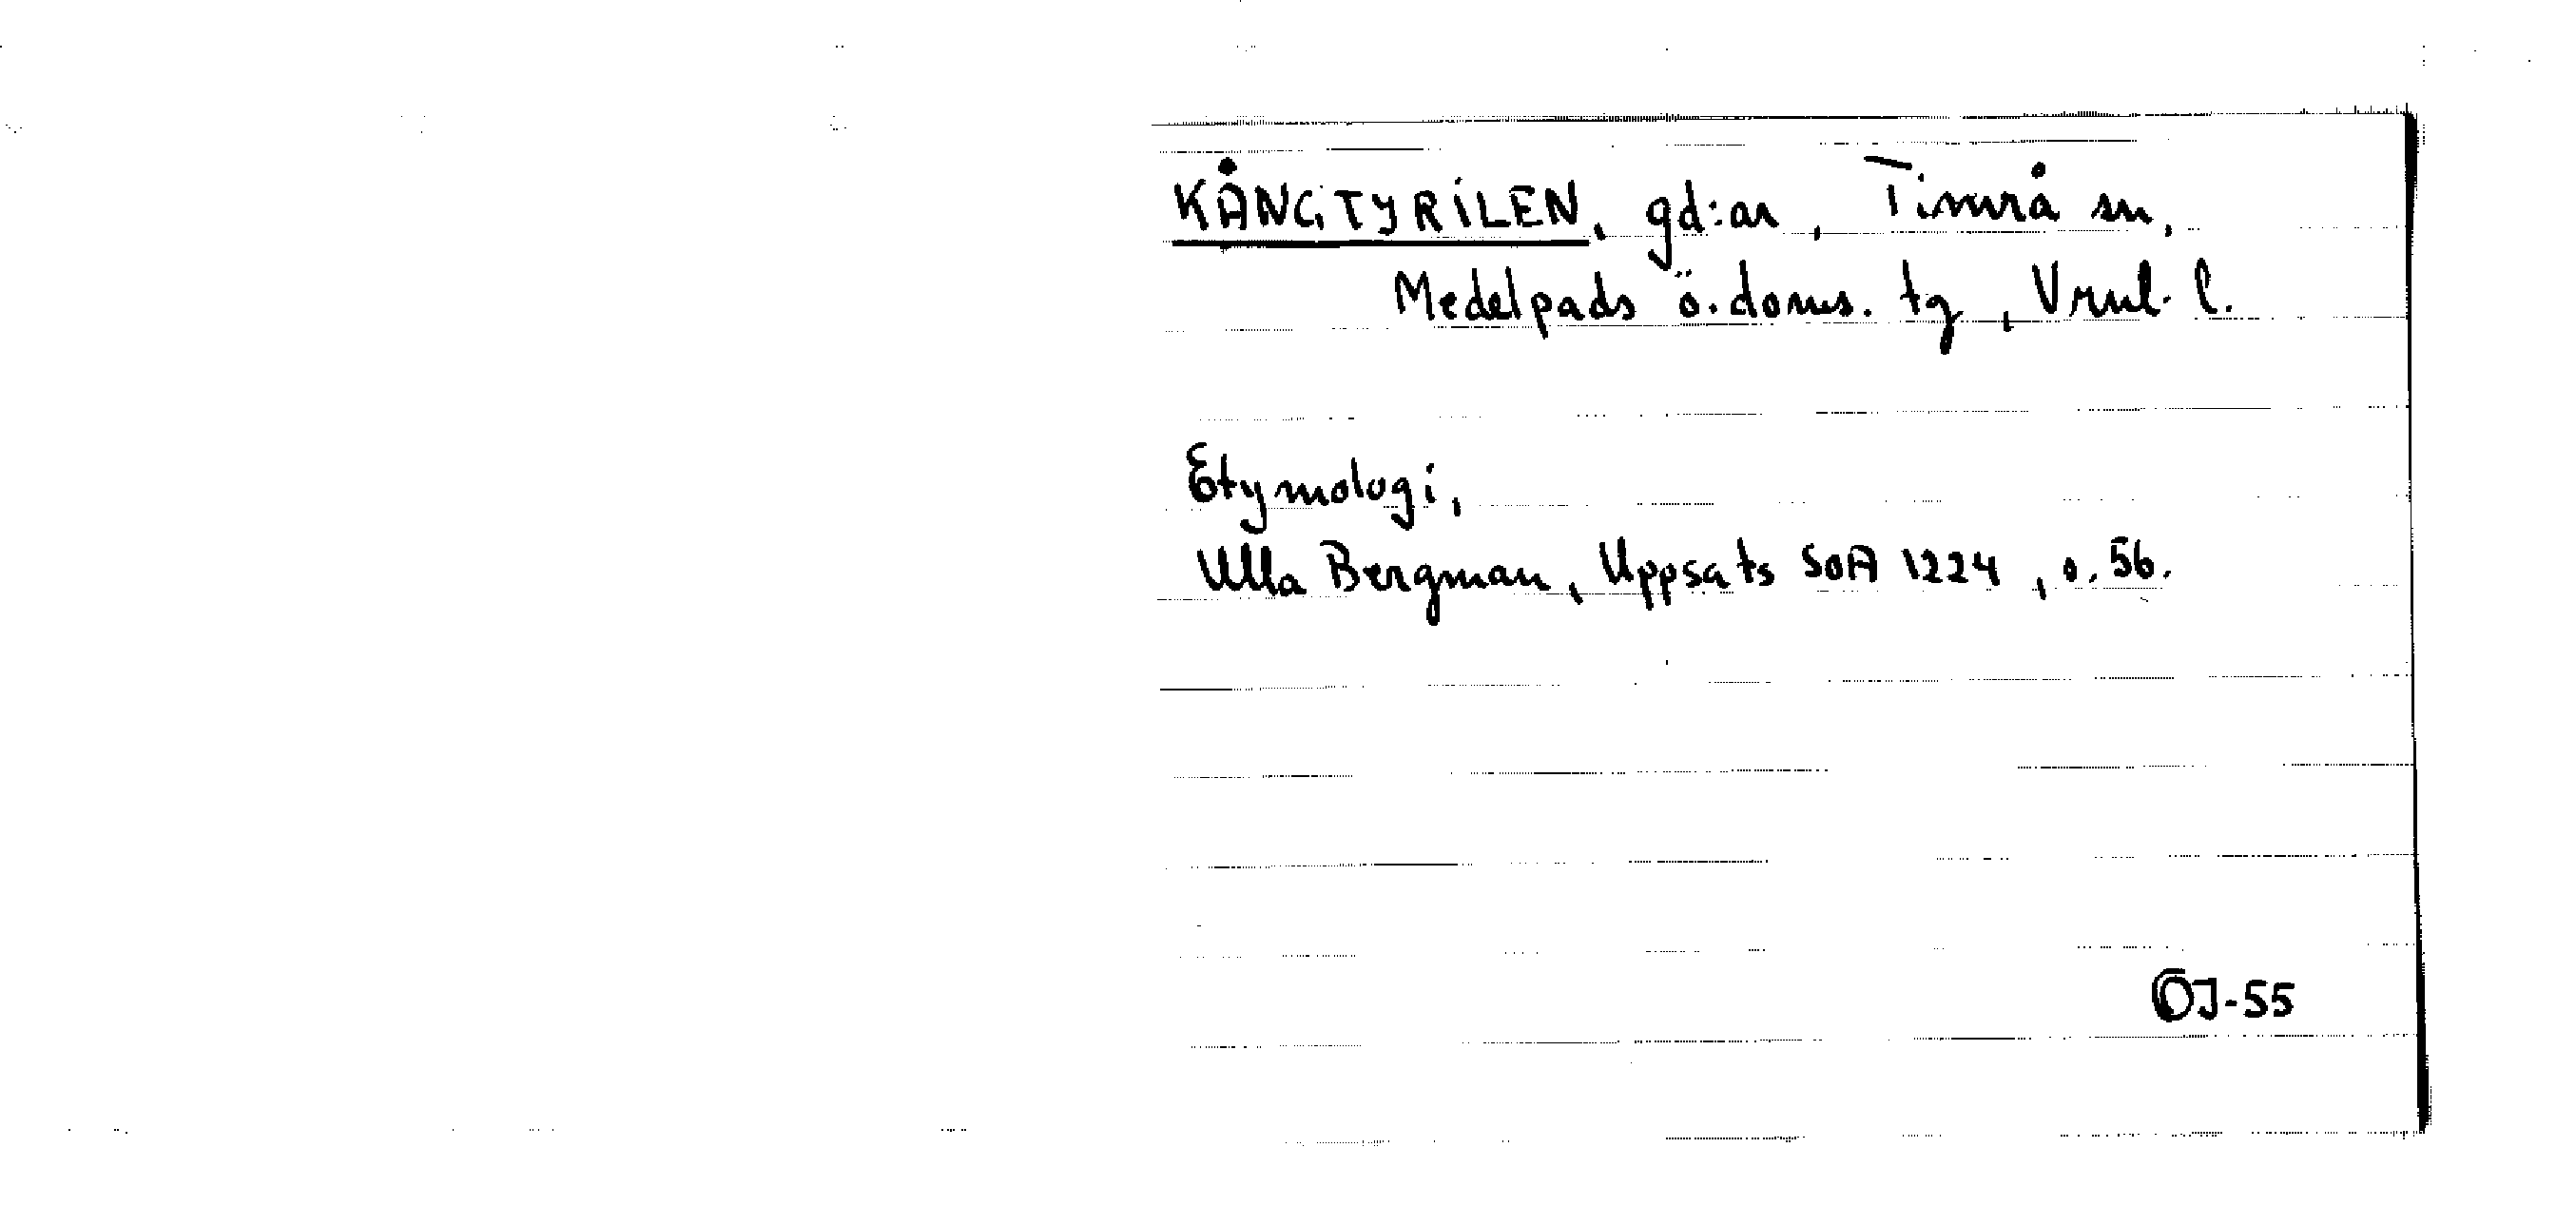 KÅNGTYRILEN, gd:ar, Timrå sn,
Medelpads ö. doms. tg, Vrnl. l.
Etymologi,
Ulla Bergman, Uppsats SOA 1224, s. 56.
ÖJ-55